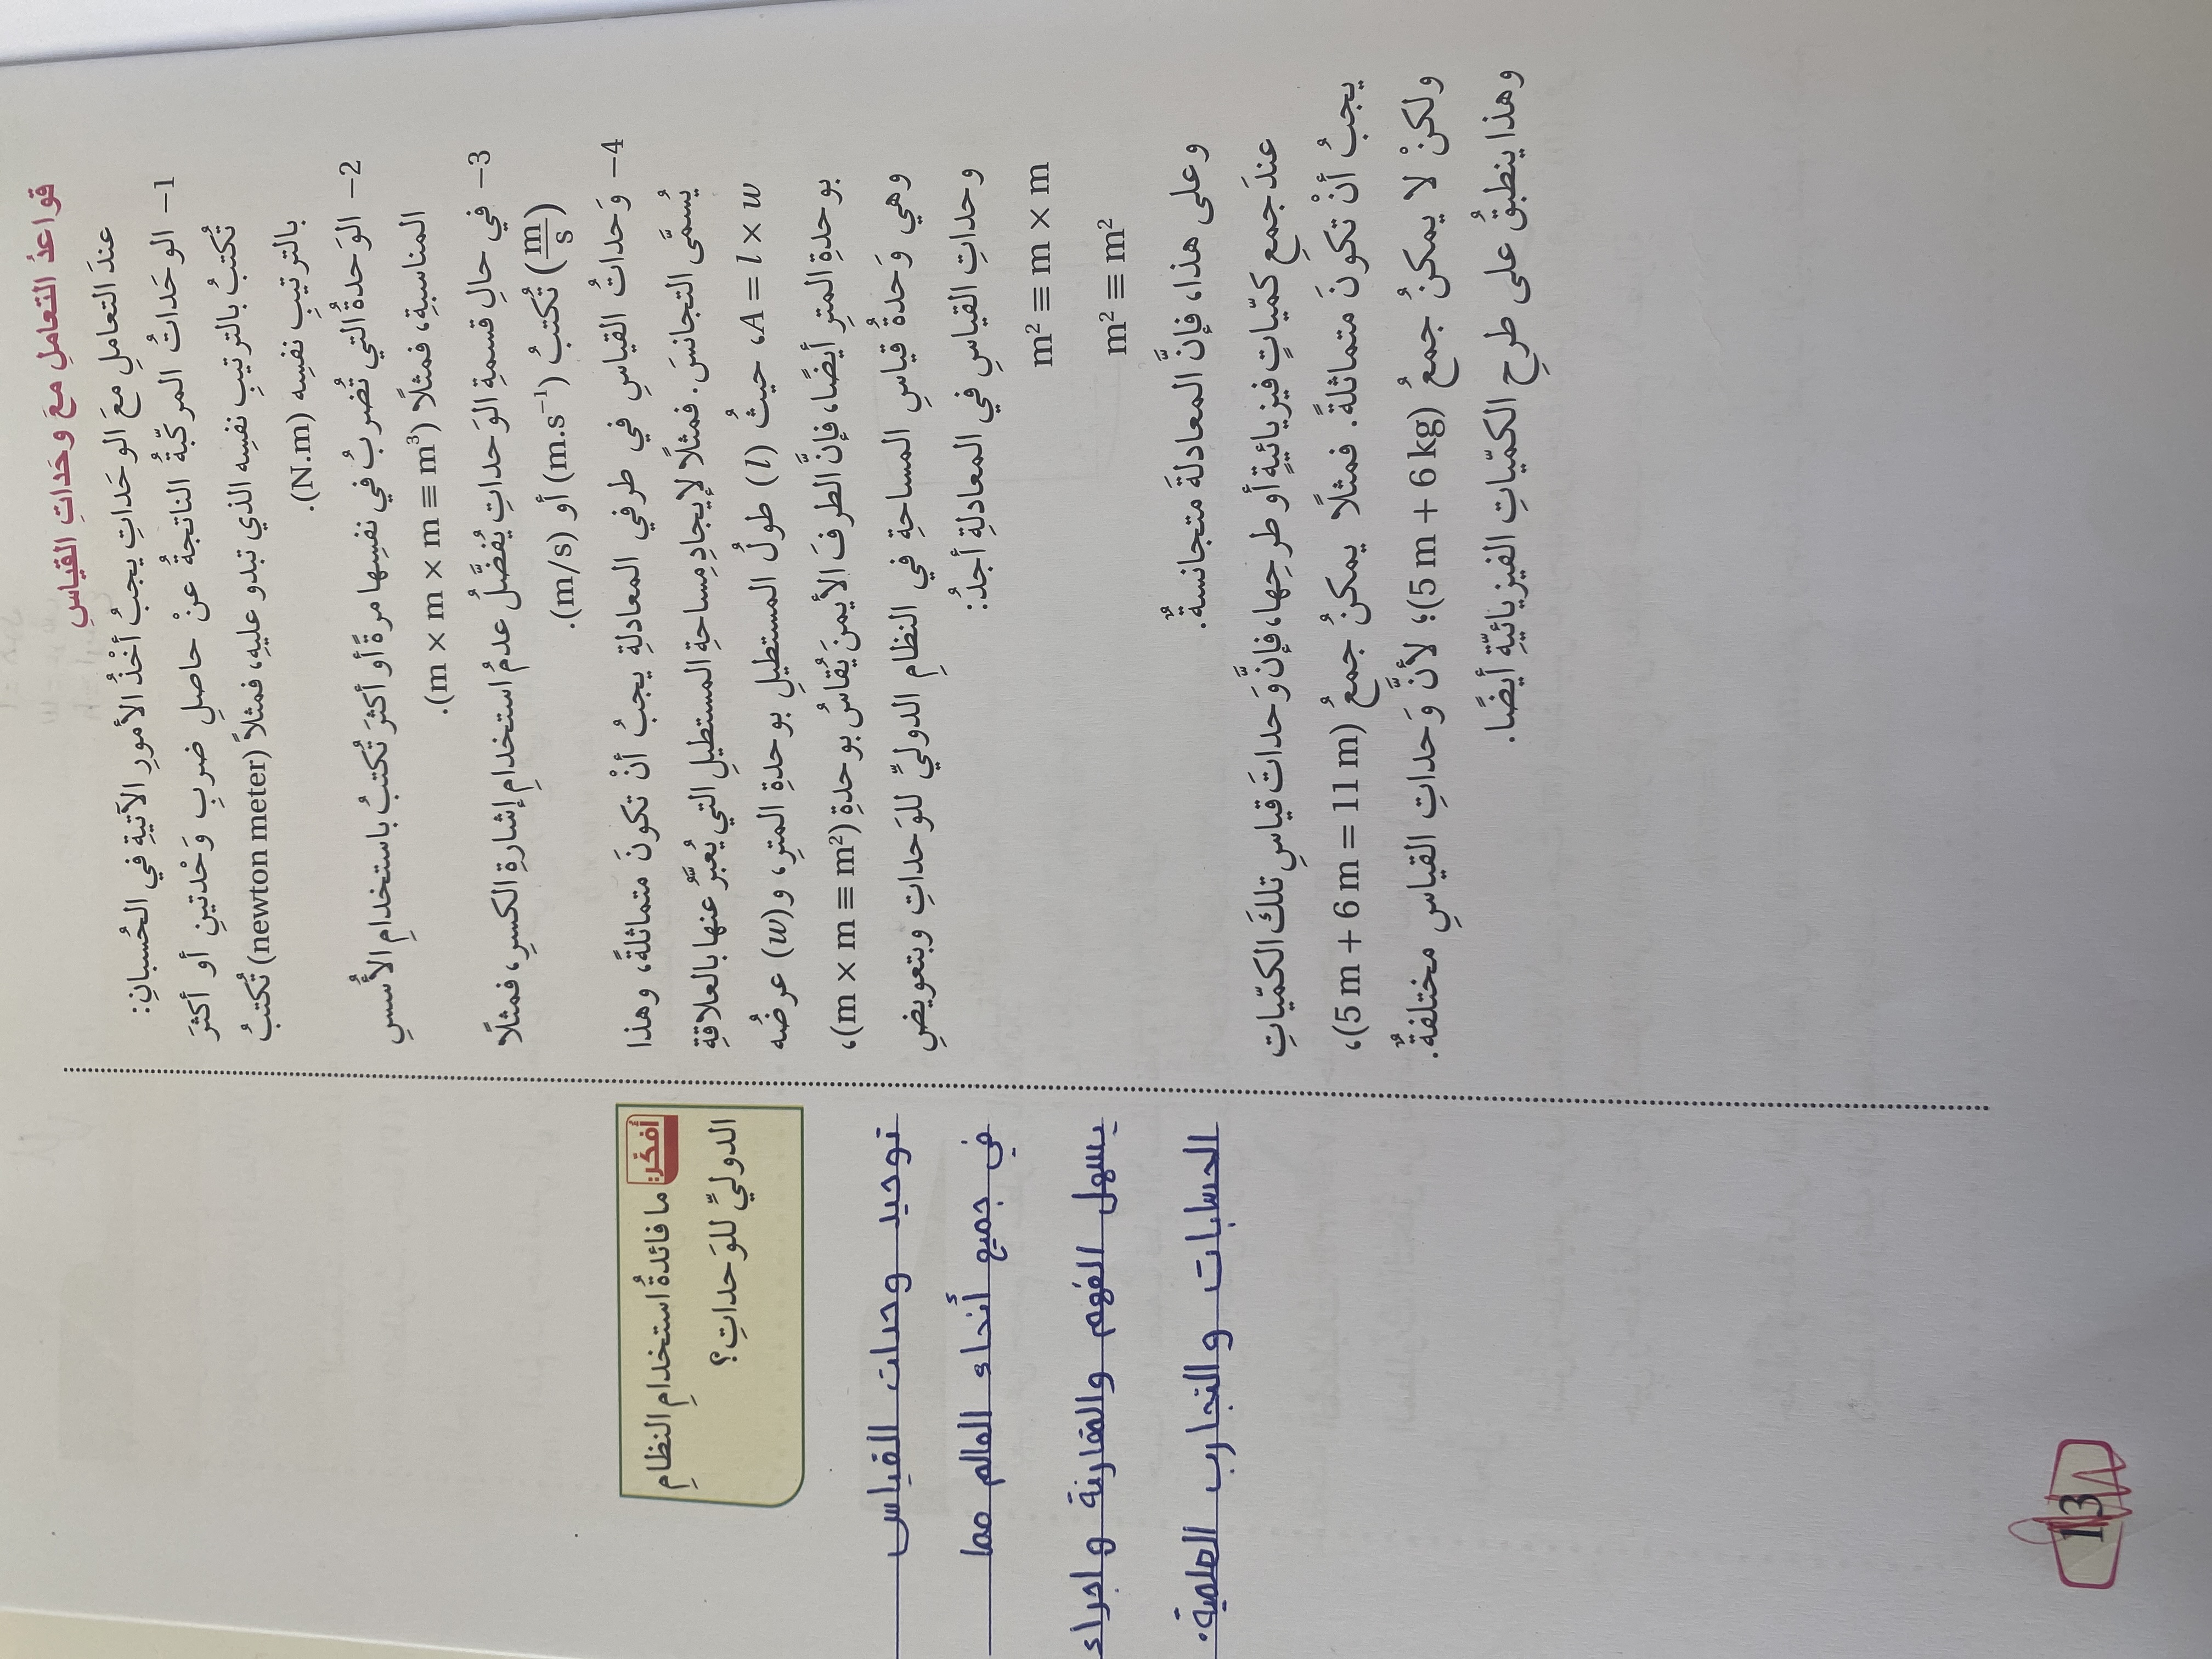 قواعدُ التعاملِ معَ وحَداتِ القياسِ
عندَ التعاملِ معَ الوحَداتِ يجبُ أخْذُ الأمورِ الآتيةِ في الحُسبانِ:
1– الوحَداتُ المركّبةُ الناتجةُ عنْ حاصلِ ضربِ وَحْدتينِ أو أكثرَ
تُكتبُ بالترتيبِ نفسِه الذي تبدو عليهِ، فمثلًا (newton meter) تُكتبُ
بالترتيبِ نفسِه (N.m).
2– الوَحدةُ التي تُضربُ في نفسِها مرةً أو أكثرَ تُكتبُ باستخدامِ الأُسسِ
المناسبةِ، فمثلًا (m × m × m ≡ m³).
3– في حالِ قسمةِ الوَحداتِ يُفضَّلُ عدمُ استخدامِ إشارةِ الكسرِ، فمثلًا
(m/s) تُكتبُ (m.s⁻¹) أو (m/s).
4– وَحَداتُ القياسِ في طرفيِ المعادلةِ يجبُ أنْ تكونَ متماثلةً، وهذا
يُسمّى التجانسَ. فمثلًا لإيجادِ مساحةِ المستطيلِ التي يُعبَّرُ عنها بالعلاقةِ
A = l × w، حيثُ (l) طولُ المستطيلِ بوحدةِ المترِ، و(w) عرضُه
بوحدةِ المترِ أيضًا، فإنَّ الطرفَ الأيمنَ يُقاسُ بوحدةِ (m × m ≡ m²)،
وهي وَحدةُ قياسِ المساحةِ في النظامِ الدوليِّ للوَحداتِ وبتعويضِ
وحداتِ القياسِ في المعادلةِ أجدُ:
m² ≡ m × m
m² ≡ m²
وعلى هذا، فإنَّ المعادلةَ متجانسةٌ.
عندَ جمعِ كميّاتٍ فيزيائيةٍ أو طرحِها، فإنَّ وَحداتَ قياسِ تلكَ الكميّاتِ
يجبُ أنْ تكونَ متماثلةً. فمثلًا يمكنُ جمعُ (5 m + 6 m = 11 m)،
ولكنْ لا يمكنُ جمعُ (5 m + 6 kg)؛ لأنَّ وَحداتِ القياسِ مختلفةٌ.
وهذا ينطبقُ على طرحِ الكميّاتِ الفيزيائيّةِ أيضًا.
أفكّرُ: ما فائدةُ استخدامِ النظامِ
الدوليِّ للوَحداتِ؟
توحيد وحدات القياس
في جميع أنحاء العالم مما
يسهل الفهم والمقارنة و اجراء
الحسابات والتجارب العلمية.
13